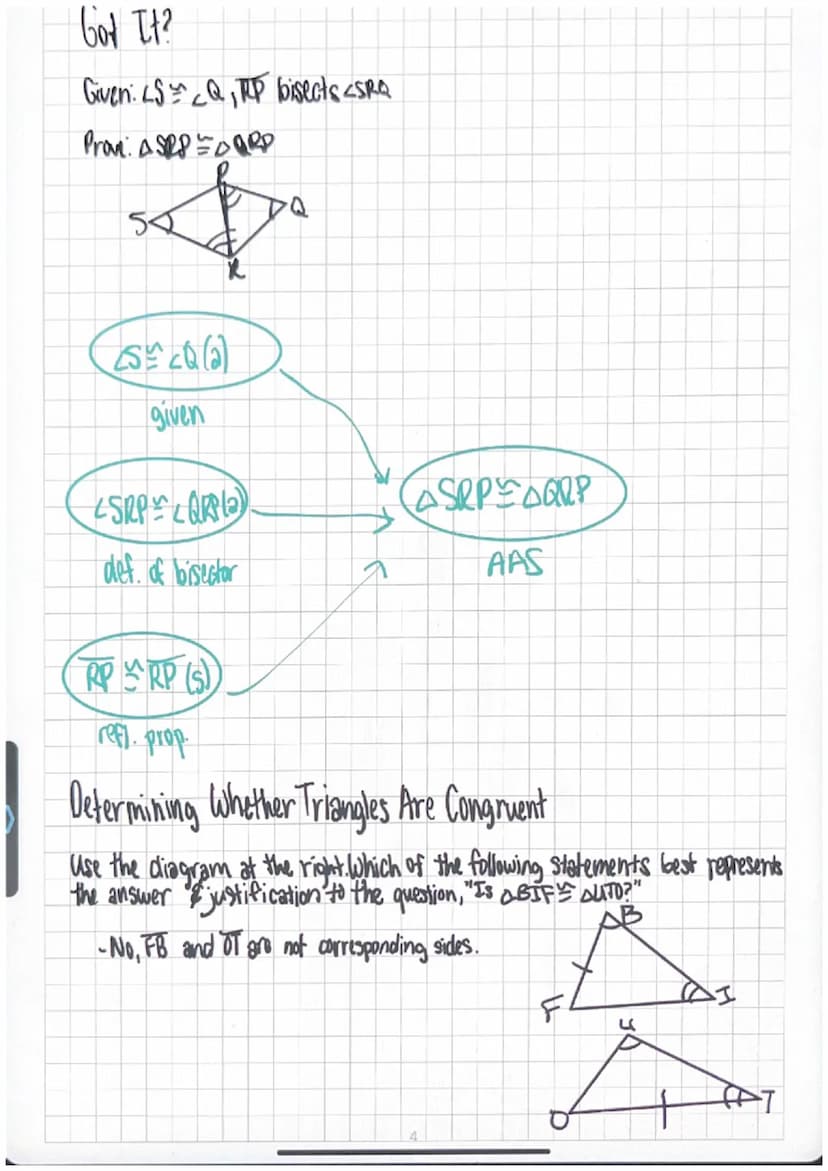 Got It?
Given: ∠S ≅ ∠Q, RP bisects ∠SRQ
Prove: △SRP ≅ △QRP
P
S
Q
R
∠S ≅ ∠Q (a)
given
∠SRP ≅ ∠QRP (a)
def. of bisector
△SRP ≅ △QRP
AAS
RP ≅ RP (s)
refl. prop.
Determining Whether Triangles Are Congruent
Use the diagram at the right. Which of the following statements best represents
the answer & justification to the question, "Is △BIF ≅ △UTO?"
- No, FB and OT are not corresponding sides.
B
F
I
U
O
T
4